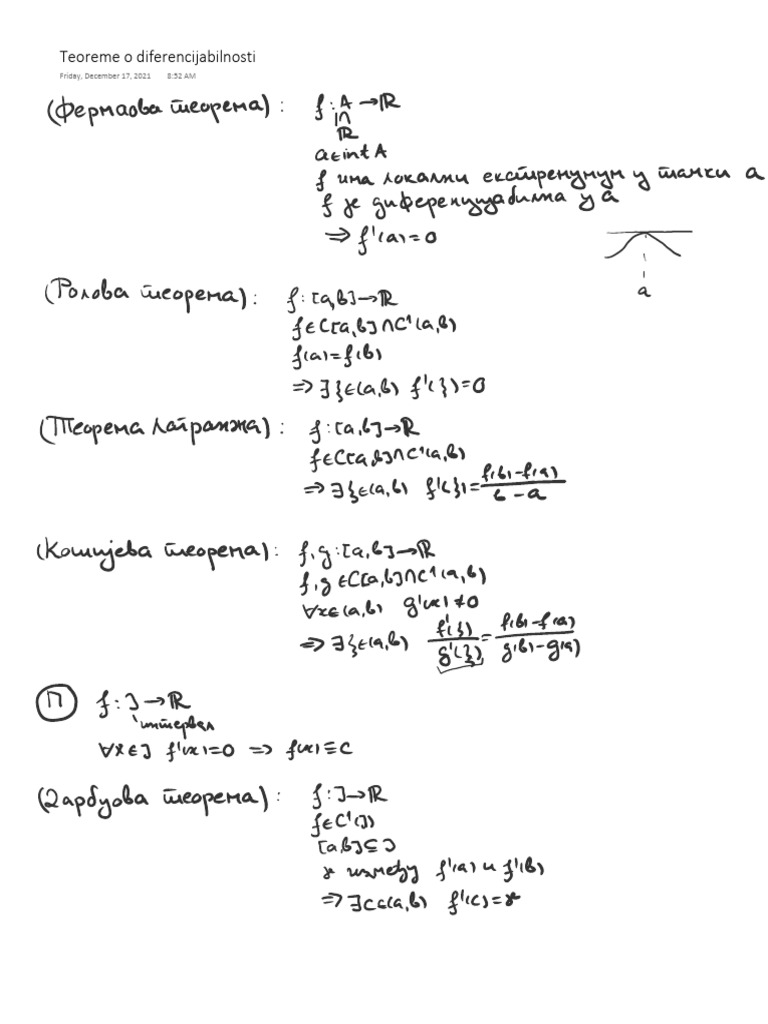 Teoreme o diferencijabilnosti
Friday, December 17, 2021 8:52 AM
(Фермаова теорема): f: A → ℝ
⊆
ℝ
a∈int A
f има локални екстремум у тачки a
f је диференцијабилна у a
⇒ f'(a)=0
a
(Ролова теорема): f: [a,b] → ℝ
f∈C[a,b]∩C¹(a,b)
f(a)=f(b)
⇒ ∃ξ∈(a,b) f'(ξ)=0
(Теорема Лагранжа): f: [a,b] → ℝ
f∈C[a,b]∩C¹(a,b)
⇒ ∃ξ∈(a,b) f'(ξ)=\frac{f(b)-f(a)}{b-a}
(Кошијева теорема): f,g: [a,b] → ℝ
f,g∈C[a,b]∩C¹(a,b)
∀x∈(a,b) g'(x)≠0
⇒ ∃ξ∈(a,b) \frac{f'(ξ)}{g'(ξ)}=\frac{f(b)-f(a)}{g(b)-g(a)}
П f: J → ℝ
интервал
∀x∈J f'(x)=0 ⇒ f(x)≡c
(Дарбуова теорема): f: J → ℝ
f∈C¹(J)
[a,b]⊆J
γ између f'(a) и f'(b)
⇒ ∃c∈(a,b) f'(c)=γ